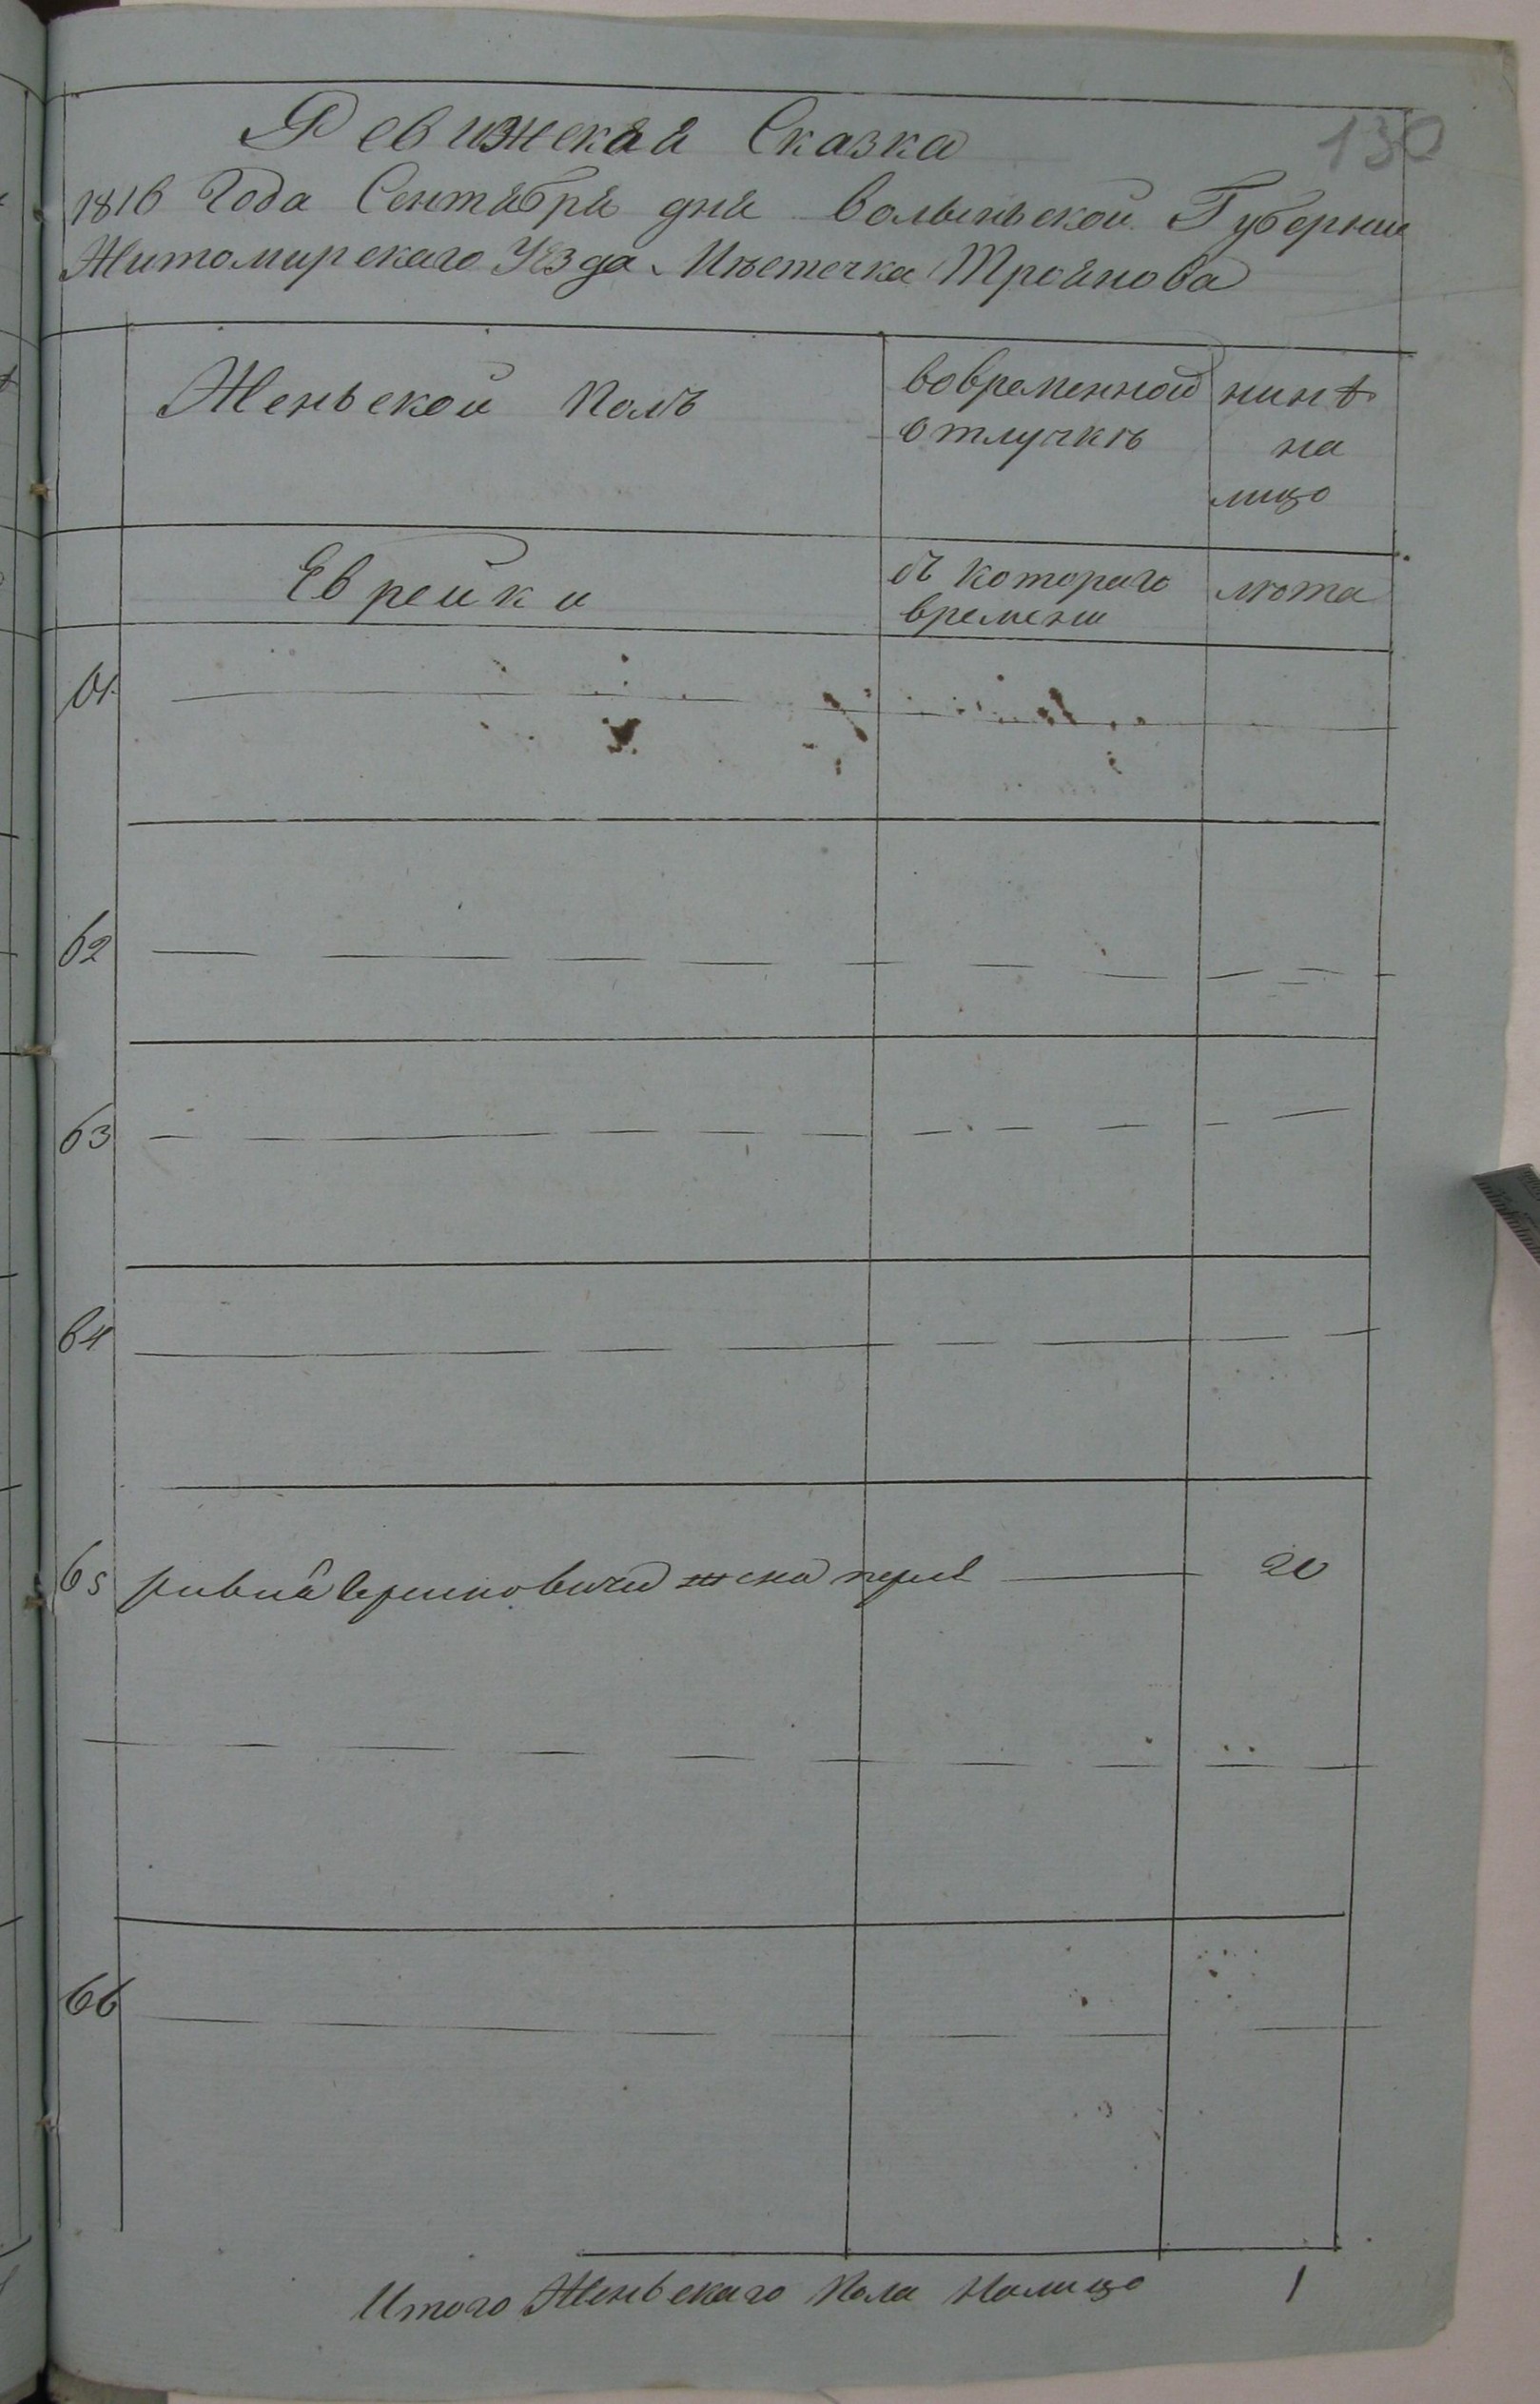 130
Ревижская Сказка
1816 Года Сентября дня Волыньской Губернии
Житомирскаго Уезда Мѣстечка Троянова
Женьской Полъ
вовременной
отлучкѣ
нинѣ
на
лицо
Еврейки
съ котораго
времени
лѣта
61
62
63
64
65 жена 20
66
Итого Женьскаго Пола Налицо 1